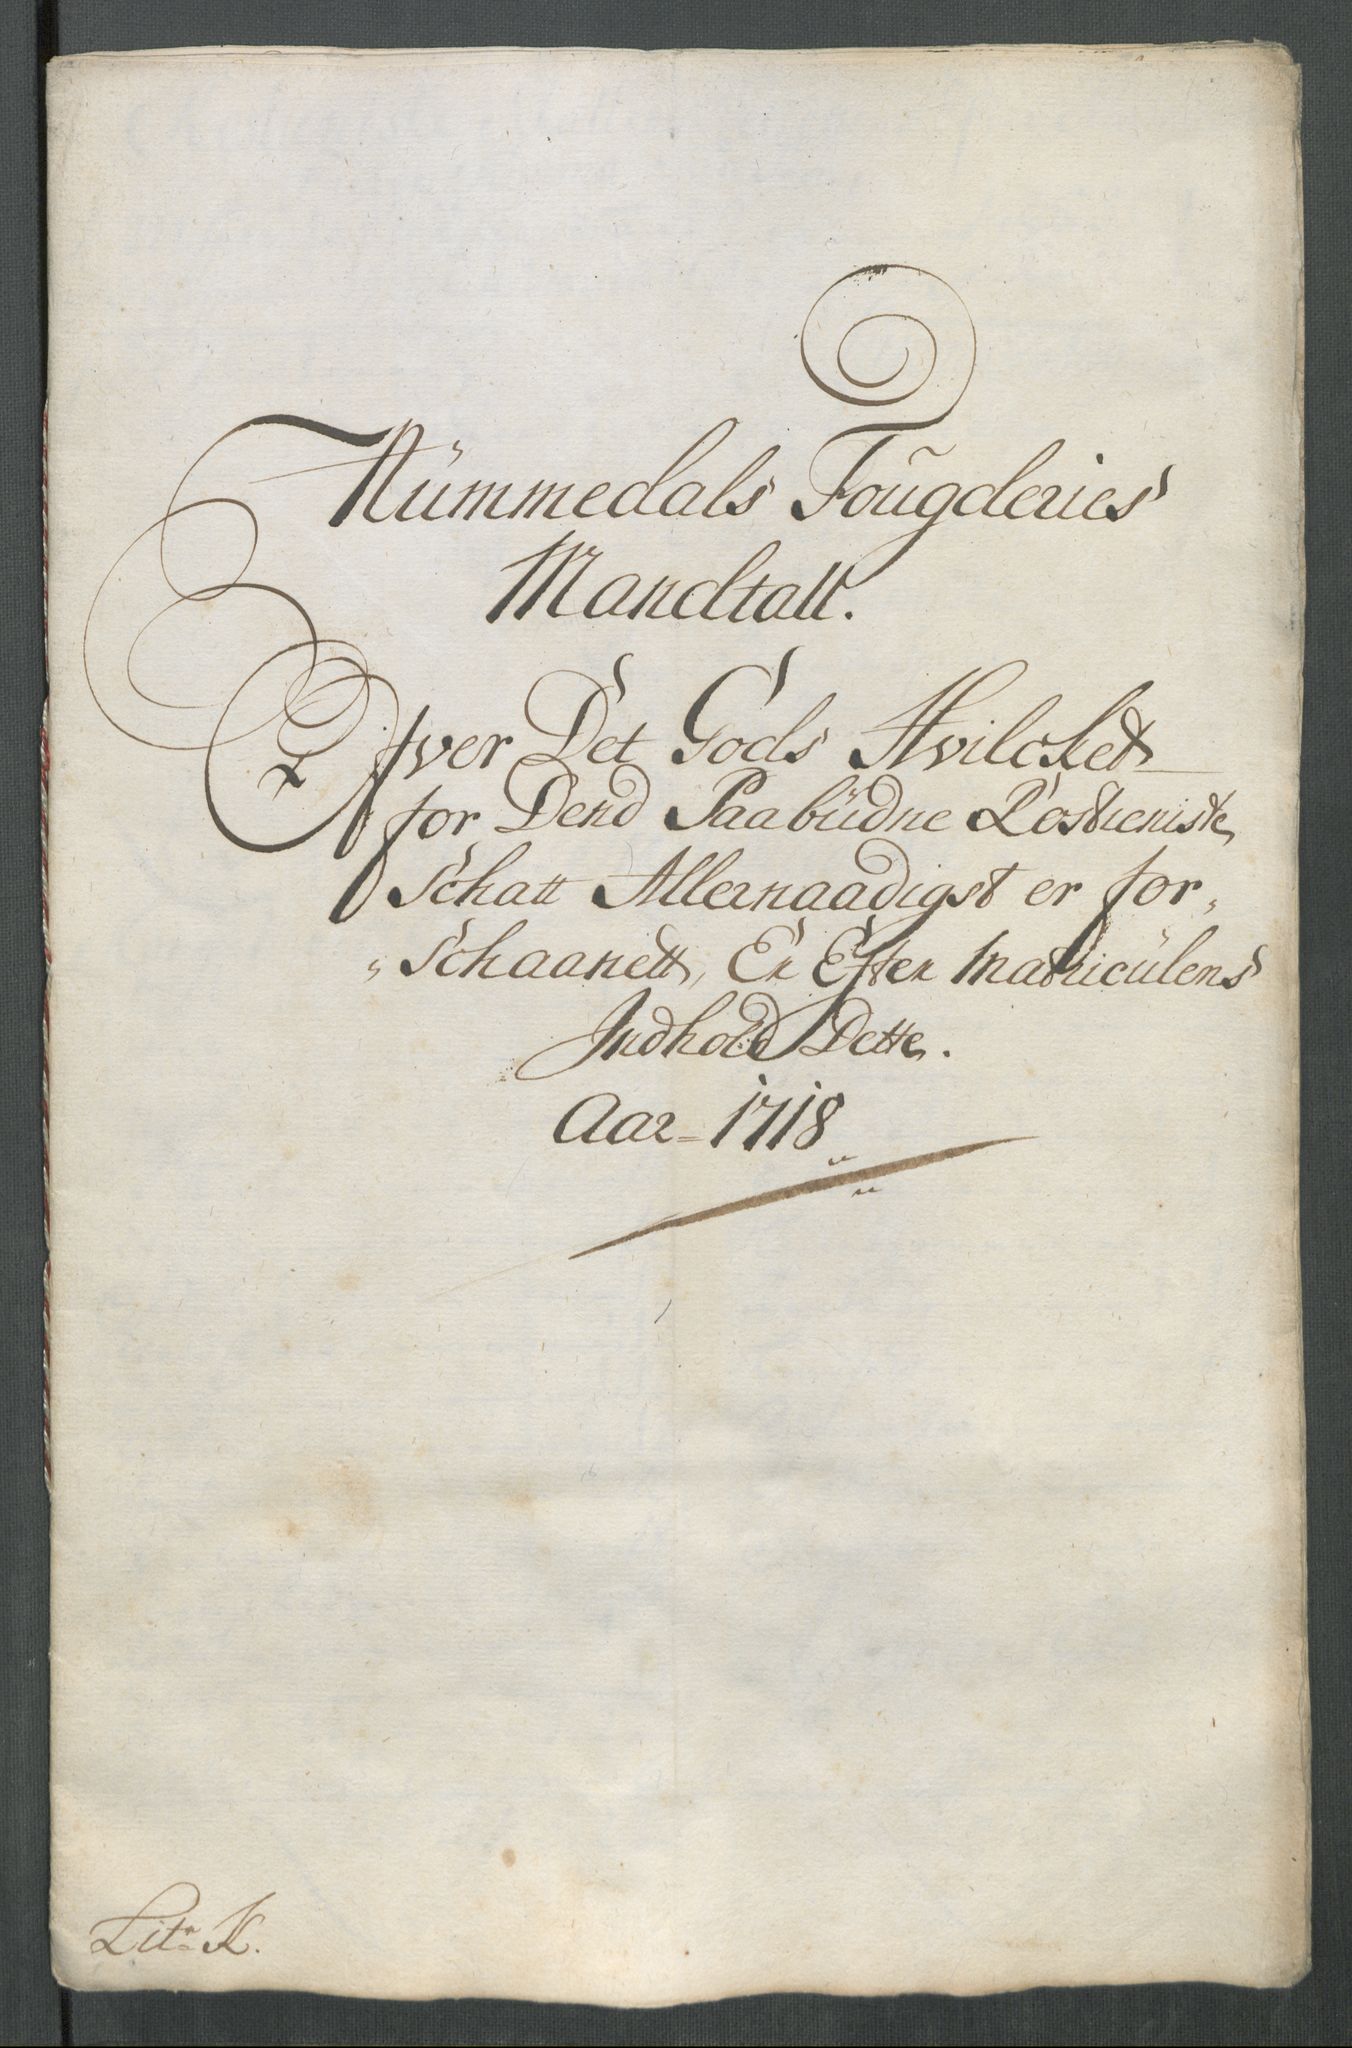 Nümmedals Fougderies
Mandtall.
Ofver Det Gods Hvilcket
for Dend Paabüdne Rostieniste
Schatt Allernaadigst er for„
„Schaanett, Er Efter Matriculens
Indhold Dette.
Aar = 1718
Litr K.